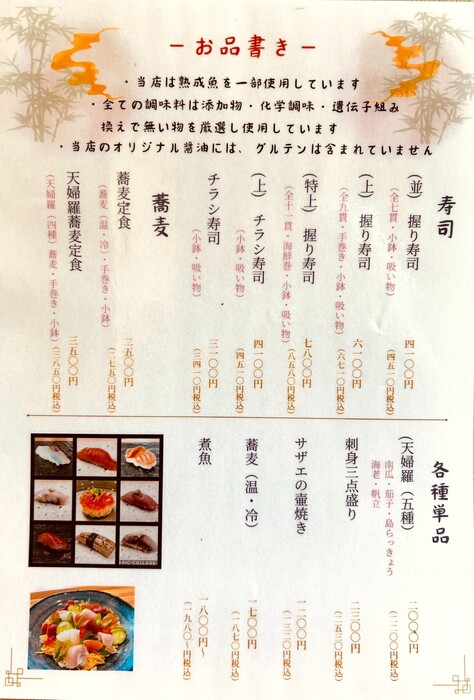 －お品書き－
・当店は熟成魚を一部使用しています
・全ての調味料は添加物・化学調味・遺伝子組み
換えで無い物を厳選し使用しています
・当店のオリジナル醤油には、グルテンは含まれていません
寿司
(並) 握り寿司 四一〇〇円
(全七貫・小鉢・吸い物) (四五一〇円税込)
(上) 握り寿司 六一〇〇円
(全九貫・手巻き・小鉢・吸い物) (六七一〇円税込)
(特上) 握り寿司 七八〇〇円
(全十一貫・海鮮巻・小鉢・吸い物) (八五八〇円税込)
(上) チラシ寿司 四一〇〇円
(小鉢・吸い物) (四五一〇円税込)
チラシ寿司 三一〇〇円
(小鉢・吸い物) (三四一〇円税込)
蕎麦
蕎麦定食 二五〇〇円
(蕎麦(温・冷)・手巻き・小鉢) (二七五〇円税込)
天婦羅蕎麦定食 三五〇〇円
(天婦羅(四種)蕎麦・手巻き・小鉢) (三八五〇円税込)
各種単品
(天婦羅(五種) 二〇〇〇円
南瓜・茄子・島らっきょう (二二〇〇円税込)
海老・帆立
刺身三点盛り 二三〇〇円
(二五三〇円税込)
サザエの壷焼き 一二〇〇円
(一三二〇円税込)
蕎麦(温・冷) 一七〇〇円
(一八七〇円税込)
煮魚 一八〇〇円〜
(一九八〇〜円税込)
PIC•COLLAGE